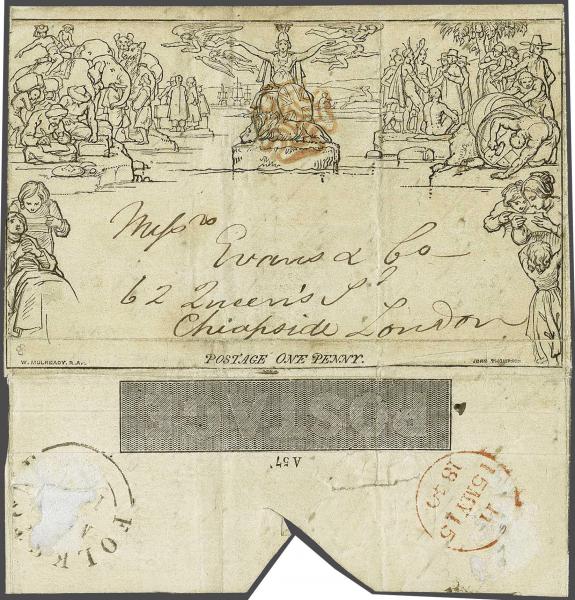 Messrs
Evans & Co
62 Queen's St
Cheapside London
W. MULREADY, R.A.
POSTAGE ONE PENNY.
JOHN THOMPSON
POSTAGE
A57
FOLKS
15 MY 15
1840